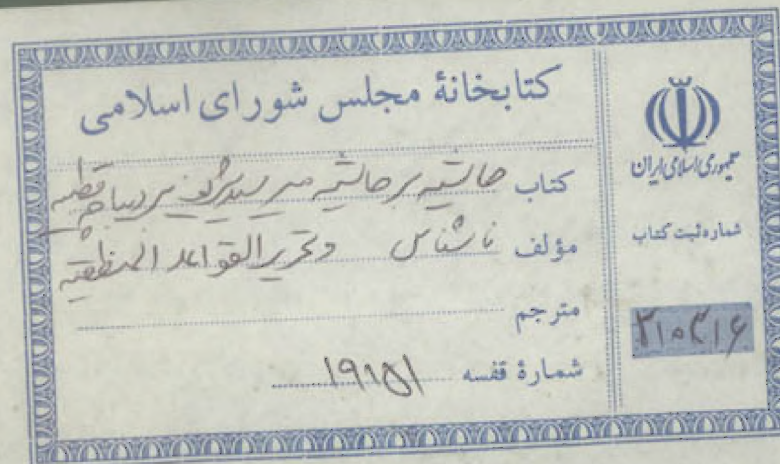 کتابخانهٔ مجلس شورای اسلامی
کتاب حاشیه بر حاشیه میر سید شریف بر دیباچه قطبیه
مؤلف ناشناس وتحریر القواعد المنطقیه
مترجم
شماره قفسه ۱۹۱۵۱
جمهوری اسلامی ایران
شماره ثبت کتاب
۲۱۰۳۱۶